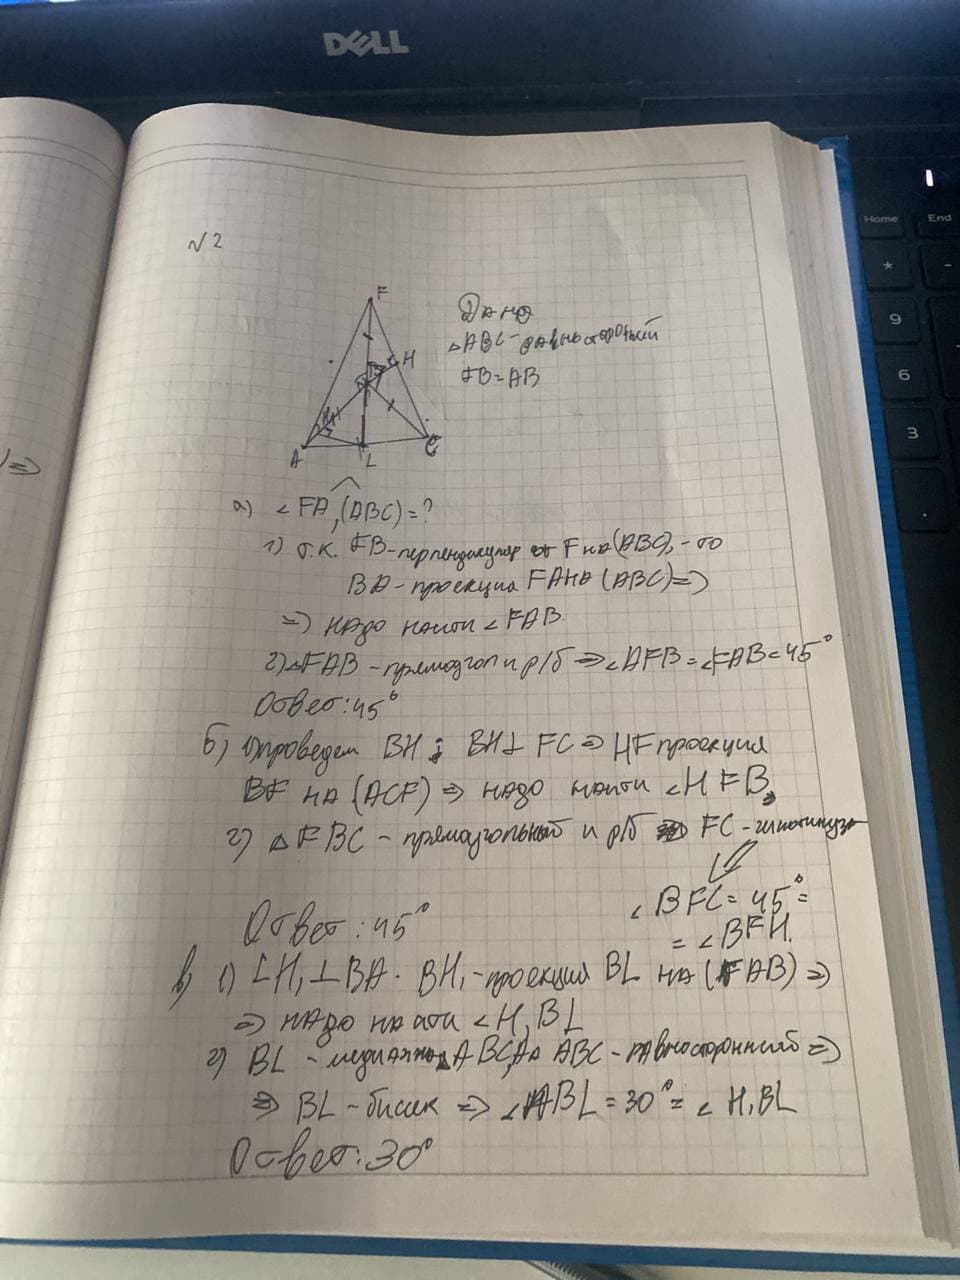 DELL
Home End
*
-
9
6
3
√2
F
H
A
L
C
Дано
△ABC - равносторонний
FB=AB
)⇒
а) ∠FA,(ABC)=?
1) т.к. FB-перпендикуляр от F на (ABC), - то
BA - проекция FA на (ABC) ⇒
⇒ надо найти ∠FAB.
2) △FAB - прямоугол и р/б ⇒ ∠AFB = ∠FAB = 45°
Ответ: 45°
б) 1) проведем BH; BH ⊥ FC ⇒ HF проекция
BF на (ACF) ⇒ надо найти ∠HFB,
2) △FBC - прямоугольный и р/б FC - гипотинуза
∠BFC = 45° =
= ∠BFH.
Ответ: 45°
в) 1) LH₁ ⊥ BA. BH₁ - проекция BL на (FAB) ⇒
⇒ надо найти ∠H₁BL
2) BL - медиана △ABC, △ABC - равносторонний ⇒
⇒ BL - бисек ⇒ ∠ABL = 30° = ∠H₁BL
Ответ: 30°